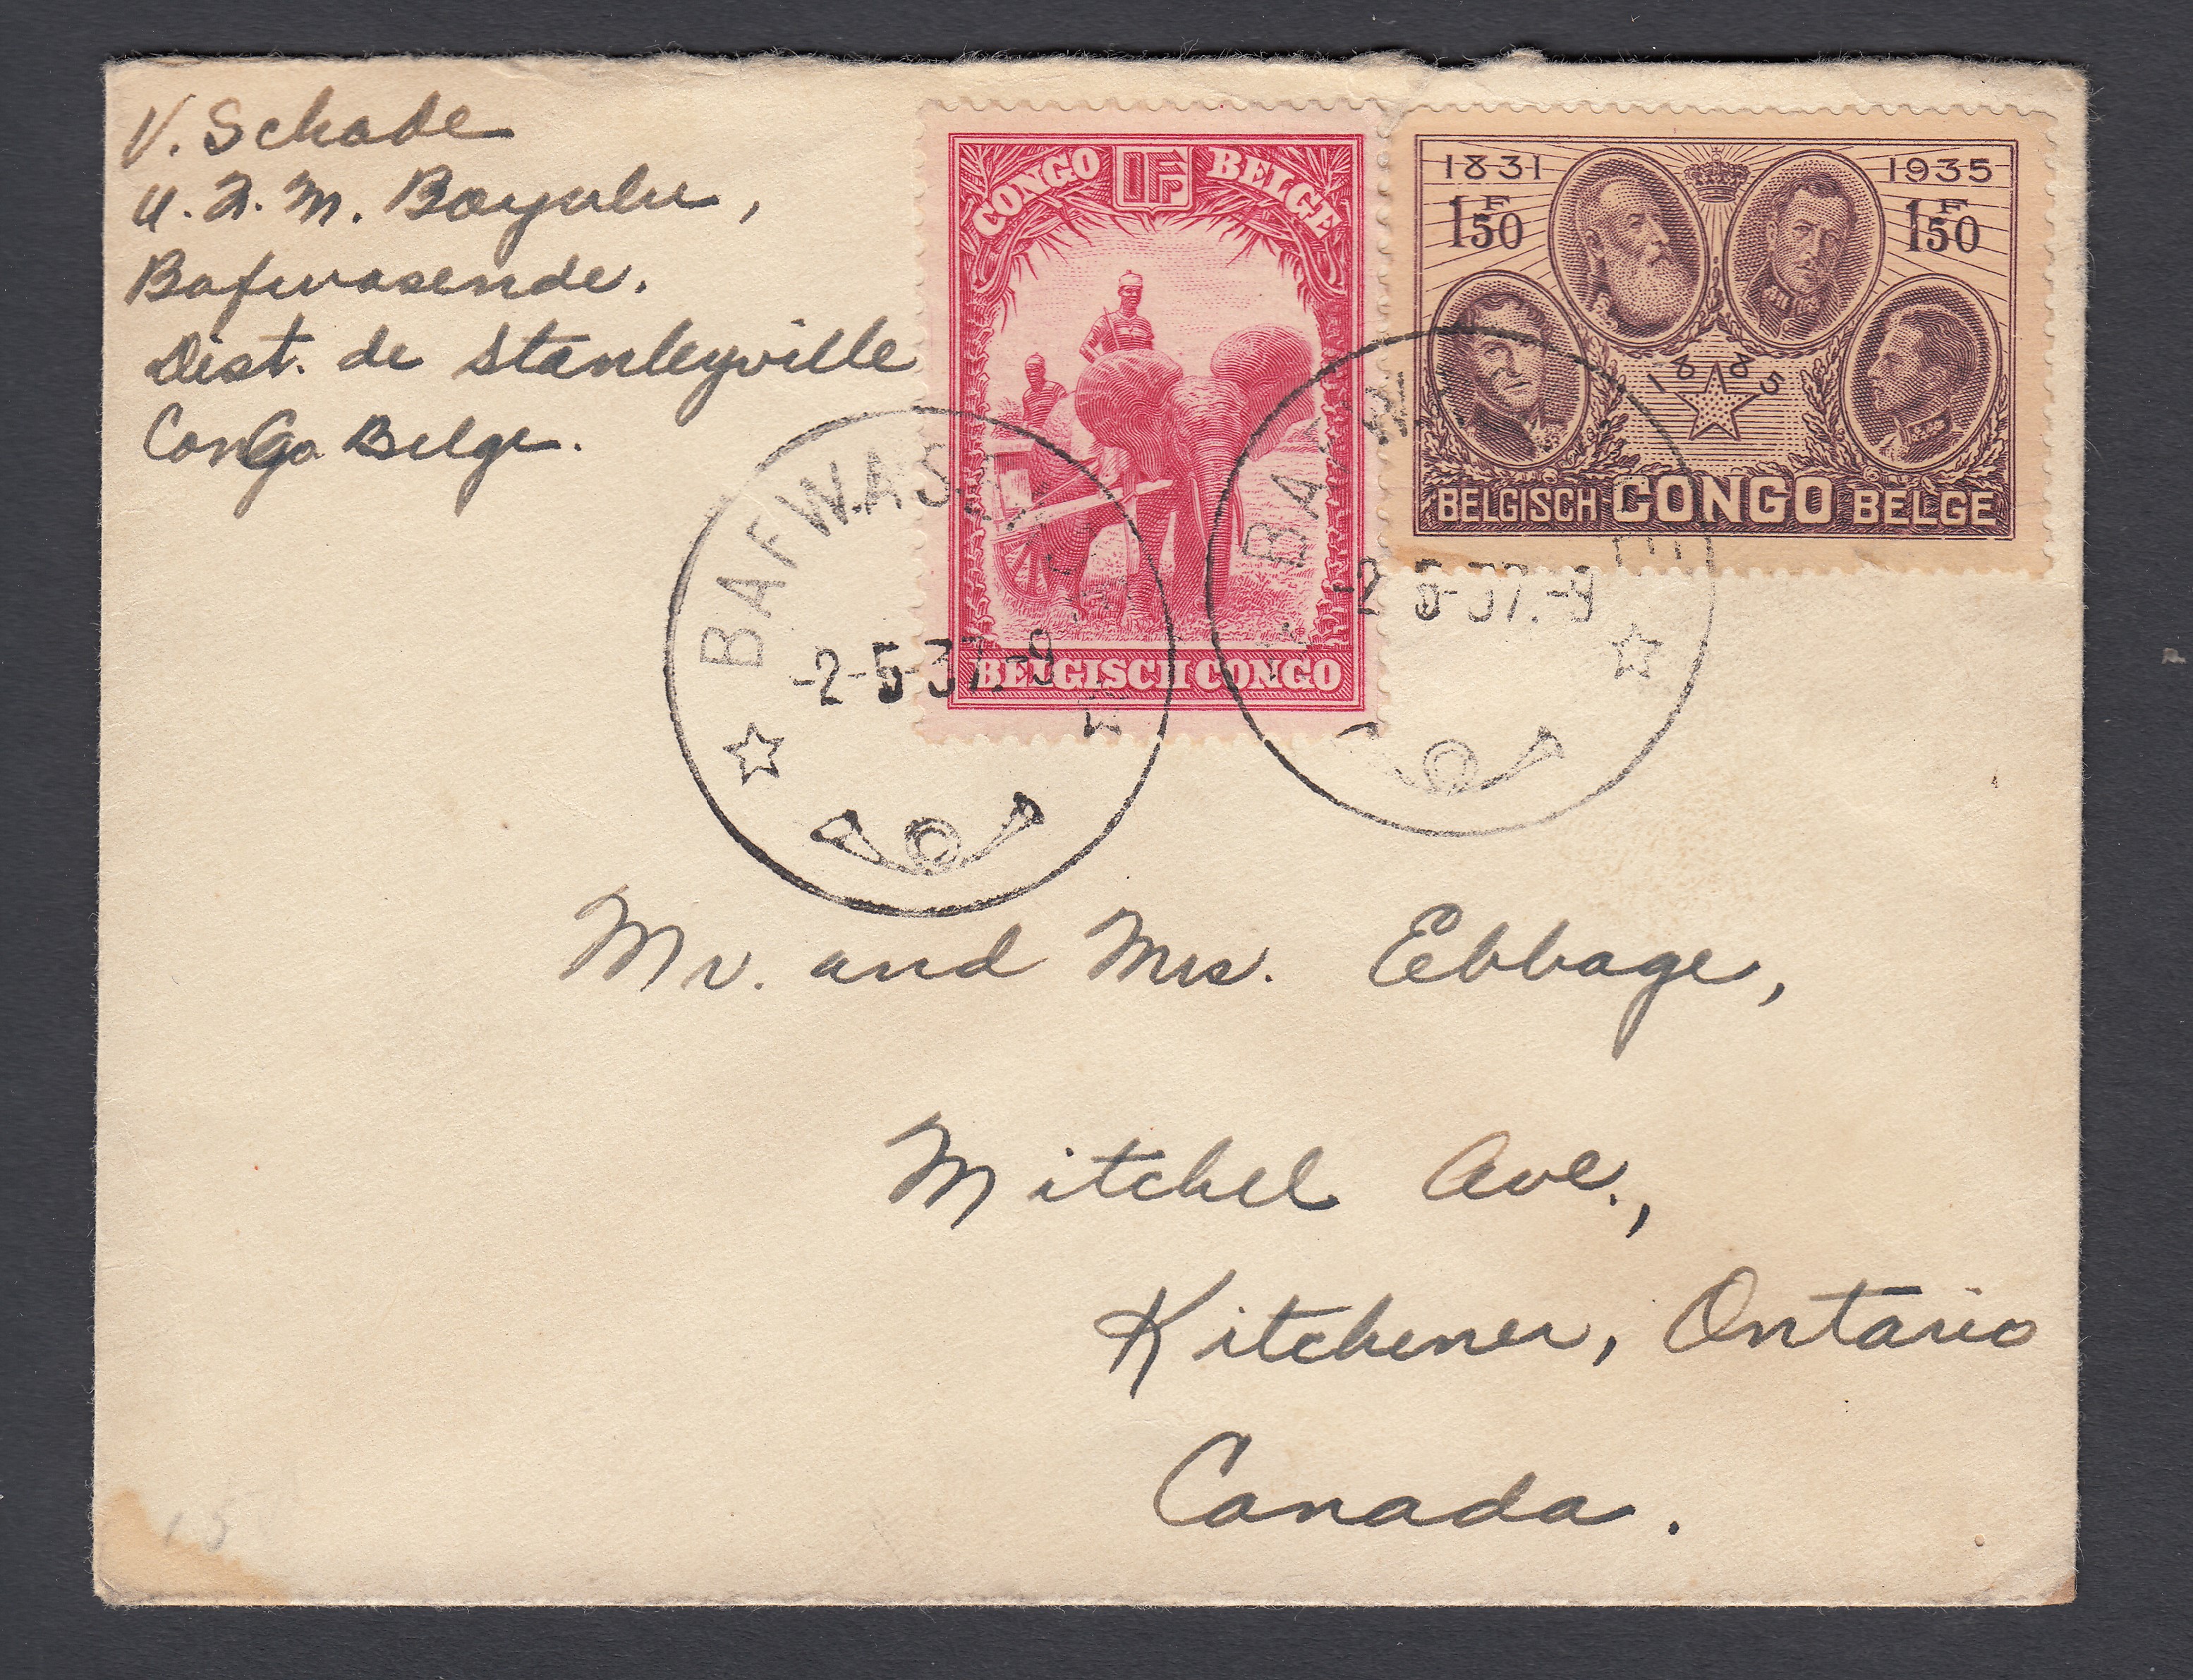 V. Schade
U. Z. M. Boyulu,
Bafwasende.
Dist. de Stanleyville
Congo Belge.
CONGO 1 Fr BELGE
BELGISCH CONGO
1831 1935
1F50 1F50
1885
BELGISCH CONGO BELGE
BAFWASENDE
-2-5-37.-9
BAFWASENDE
-2-5-37.-9
Mr. and Mrs. Ebbage,
Mitchel Ave.,
Kitchener, Ontario
Canada.